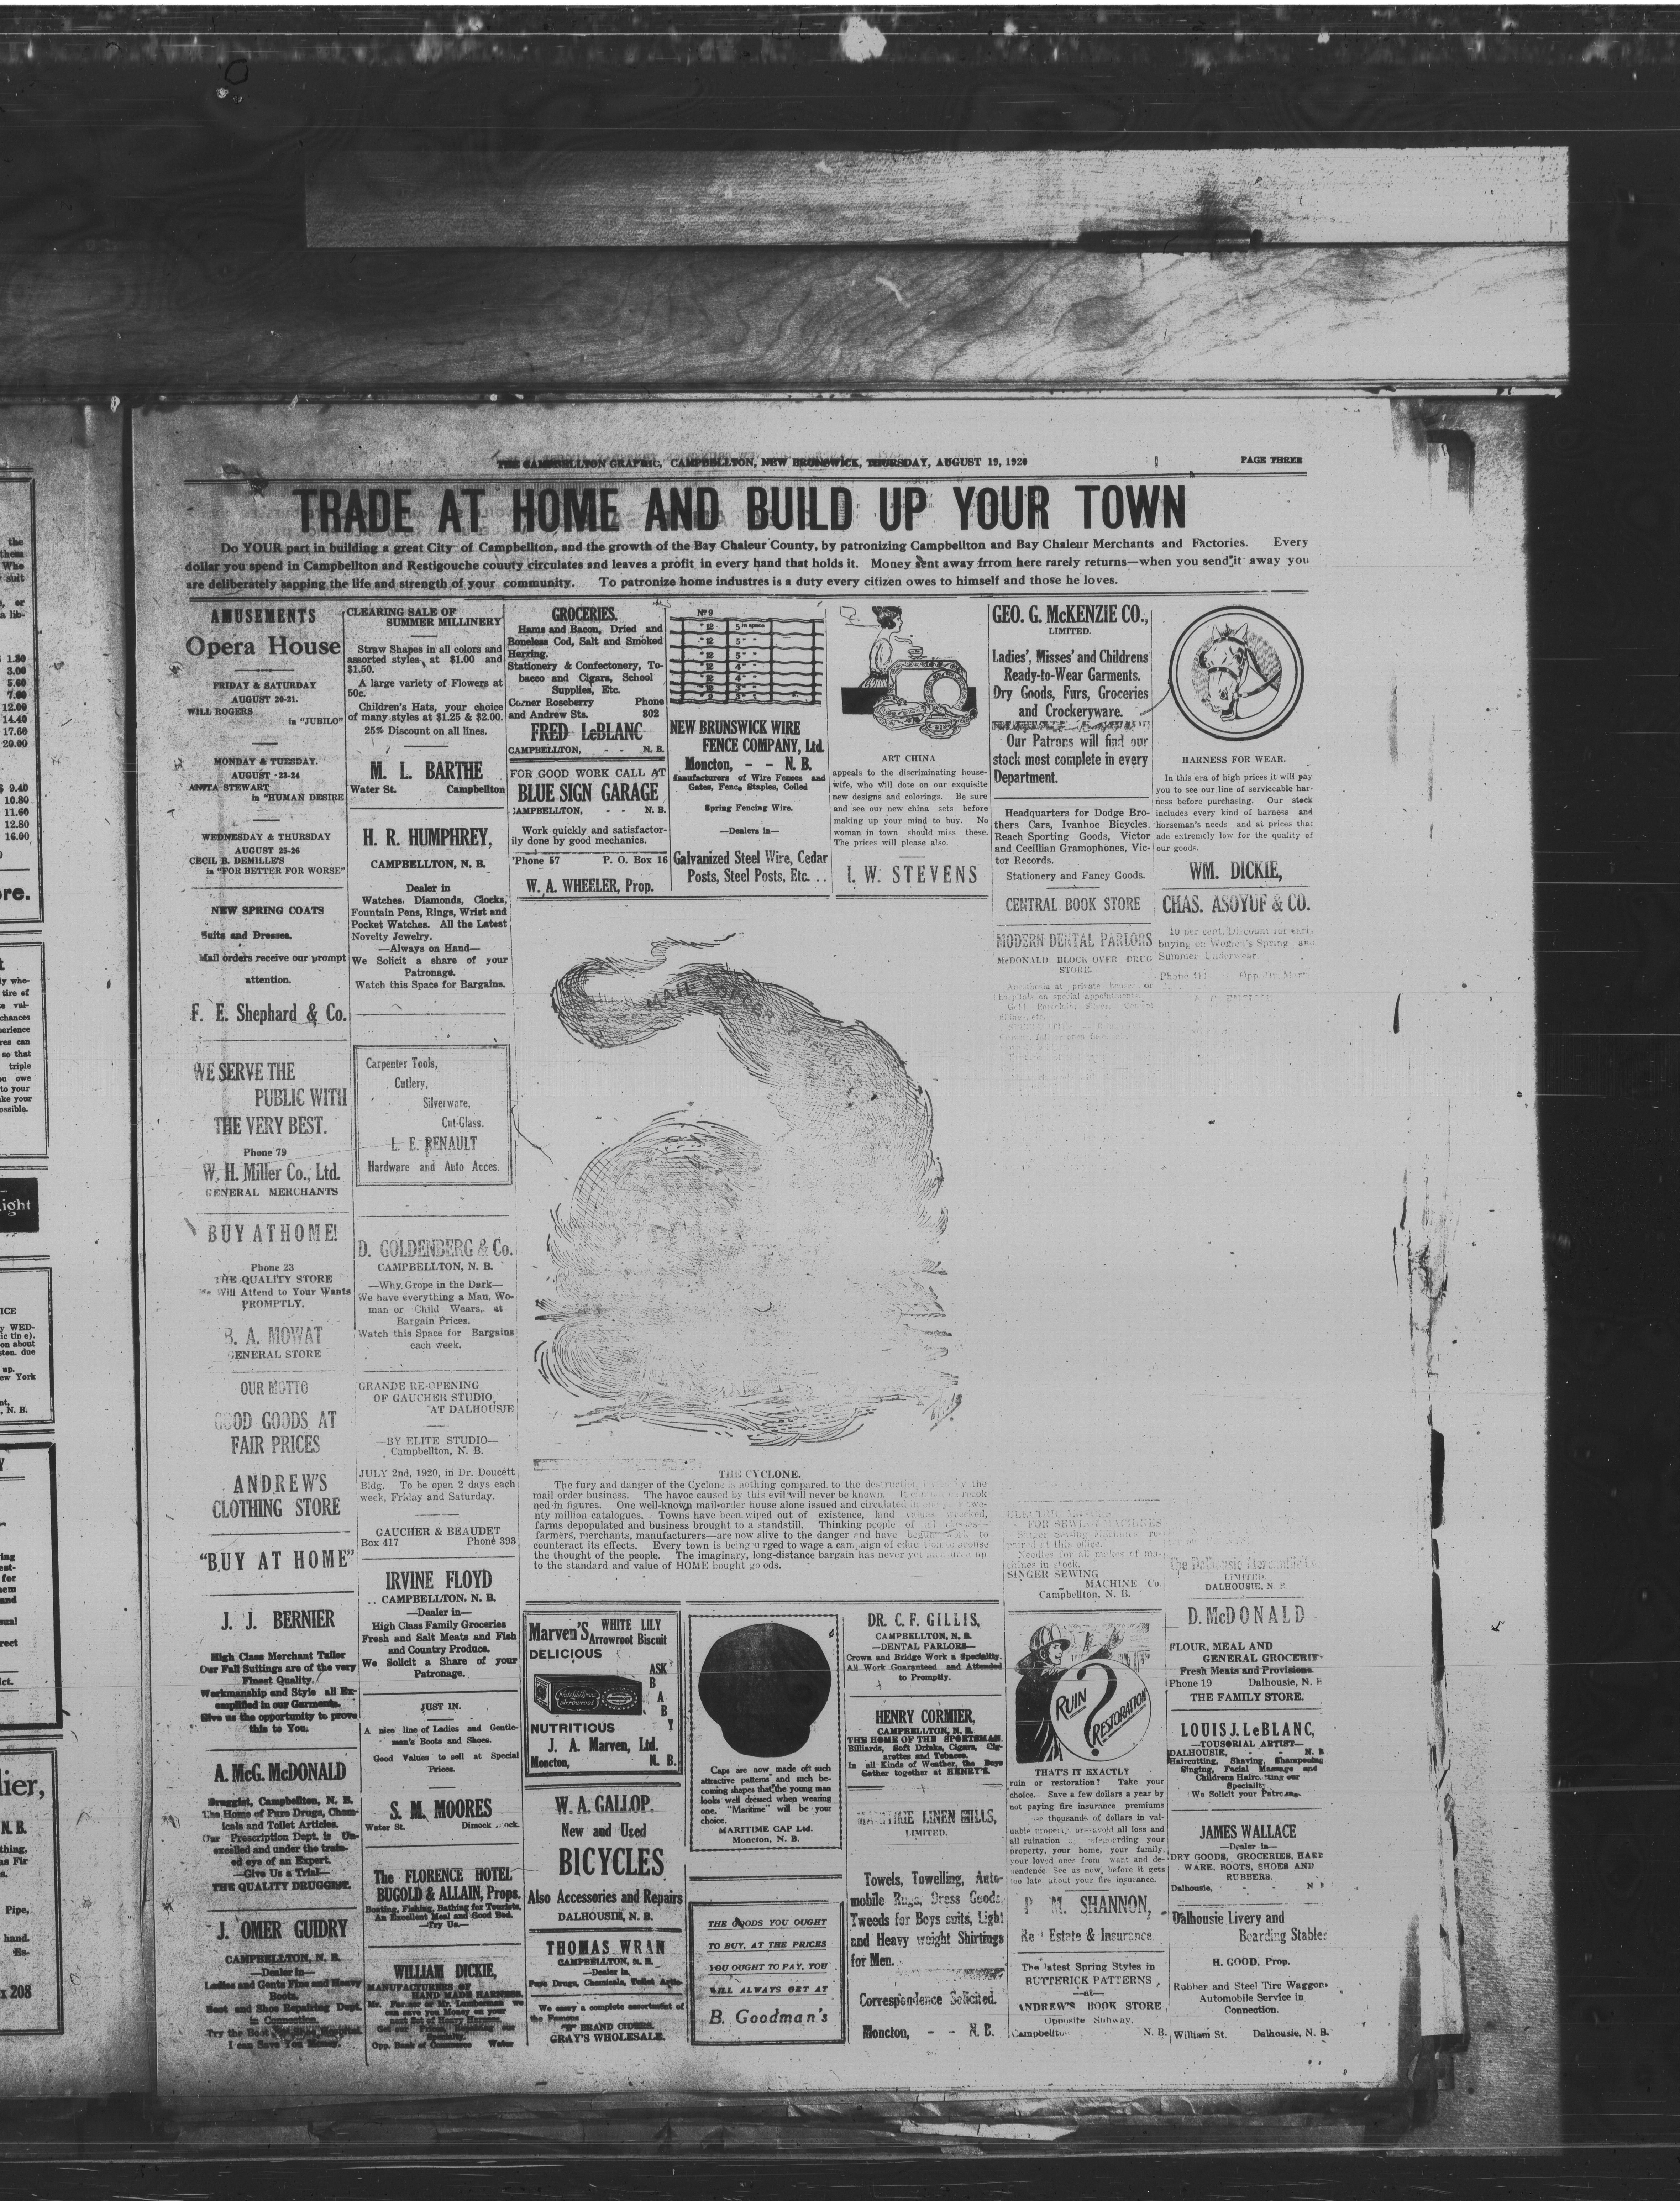 THE CAMPBELLTON GRAPHIC, CAMPBELLTON, NEW BRUNSWICK, THURSDAY, AUGUST 19, 1920
PAGE THREE
TRADE AT HOME AND BUILD UP YOUR TOWN
Do YOUR part in building a great City of Campbellton, and the growth of the Bay Chaleur County, by patronizing Campbellton and Bay Chaleur Merchants and Factories. Every
dollar you spend in Campbellton and Restigouche couuty circulates and leaves a profit in every hand that holds it. Money sent away frrom here rarely returns—when you send it away you
are deliberately sapping the life and strength of your community. To patronize home industres is a duty every citizen owes to himself and those he loves.
AMUSEMENTS
Opera House
FRIDAY & SATURDAY
AUGUST 20-21.
WILL ROGERS
in "JUBILO"
MONDAY & TUESDAY.
AUGUST 23-24
ANITA STEWART
in "HUMAN DESIRE
WEDNESDAY & THURSDAY
AUGUST 25-26
CECIL B. DEMILLE'S
in "FOR BETTER FOR WORSE"
NEW SPRING COATS
Suits and Dresses.
Mail orders receive our prompt
attention.
F. E. Shephard & Co.
WE SERVE THE
PUBLIC WITH
THE VERY BEST.
Phone 79
W. H. Miller Co., Ltd.
GENERAL MERCHANTS
BUY AT HOME!
Phone 23
THE QUALITY STORE
Will Attend to Your Wants
PROMPTLY.
B. A. MOWAT
GENERAL STORE
OUR MOTTO
GOOD GOODS AT
FAIR PRICES
ANDREW'S
CLOTHING STORE
"BUY AT HOME"
J. J. BERNIER
High Class Merchant Tailor
Our Fall Suitings are of the very
Finest Quality.
Workmanship and Style all Ex-
emplified in our Garments.
Give us the opportunity to prove
this to You.
A. McG. McDONALD
Druggist, Campbellton, N. B.
The Home of Pure Drugs, Chem-
icals and Toilet Articles.
Our Prescription Dept. is Un-
excelled and under the train-
ed eye of an Expert.
—Give Us a Trial—
THE QUALITY DRUGGIST.
J. OMER GUIDRY
CAMPBELLTON, N. B.
—Dealer in—
Ladies and Gents Fine and Heavy
Boots.
Boot and Shoe Repairing Dept.
in Connection.
Try the Boot
I can Save You Money.
CLEARING SALE OF
SUMMER MILLINERY
Straw Shapes in all colors and
assorted styles at $1.00 and
$1.50.
A large variety of Flowers at
50c.
Children's Hats, your choice
of many styles at $1.25 & $2.00.
25% Discount on all lines.
M. L. BARTHE
Water St. Campbellton
H. R. HUMPHREY,
CAMPBELLTON, N. B.
Dealer in
Watches, Diamonds, Clocks,
Fountain Pens, Rings, Wrist and
Pocket Watches. All the Latest
Novelty Jewelry.
—Always on Hand—
We Solicit a share of your
Patronage.
Watch this Space for Bargains.
Carpenter Tools,
Cutlery,
Silverware,
Cut-Glass.
L. E. RENAULT
Hardware and Auto Acces.
D. GOLDENBERG & Co.
CAMPBELLTON, N. B.
—Why Grope in the Dark—
We have everything a Man, Wo-
man or Child Wears, at
Bargain Prices.
Watch this Space for Bargains
each week.
GRANDE RE-OPENING
OF GAUCHER STUDIO
AT DALHOUSJE
—BY ELITE STUDIO—
Campbellton, N. B.
JULY 2nd, 1920, in Dr. Doucett
Bldg. To be open 2 days each
week, Friday and Saturday.
GAUCHER & BEAUDET
Box 417 Phone 393
IRVINE FLOYD
CAMPBELLTON, N. B.
—Dealer in—
High Class Family Groceries
Fresh and Salt Meats and Fish
and Country Produce.
We Solicit a Share of your
Patronage.
JUST IN.
A nice line of Ladies and Gentle-
men's Boots and Shoes.
Good Values to sell at Special
Prices.
S. M. MOORES
Water St. Dimock
The FLORENCE HOTEL
BUGOLD & ALLAIN, Props.
Boating, Fishing, Bathing for Tourists.
An Excellent Meal and Good Bed.
—Try Us—
WILLIAM DICKIE,
MANUFACTURERS OF
HAND MADE HARNESS.
Mr. Farmer or Mr. Lumberman we
can save you Money on your
next Set of Heavy Harness.
Opp. Bank of Commerce Water
GROCERIES.
Hams and Bacon, Dried and
Boneless Cod, Salt and Smoked
Herring.
Stationery & Confectonery, To-
bacco and Cigars, School
Supplies, Etc.
Corner Roseberry Phone
and Andrew Sts. 802
FRED LeBLANC
CAMPBELLTON, - - N. B.
FOR GOOD WORK CALL AT
BLUE SIGN GARAGE
CAMPBELLTON, - - N. B.
Work quickly and satisfactor-
ily done by good mechanics.
'Phone 57 P. O. Box 16
W. A. WHEELER, Prop.
No 9
NEW BRUNSWICK WIRE
FENCE COMPANY, Ltd.
Moncton, - - N. B.
Manufacturers of Wire Fences and
Gates, Fence Staples, Coiled
Spring Fencing Wire.
—Dealers in—
Galvanized Steel Wire, Cedar
Posts, Steel Posts, Etc. ..
ART CHINA
appeals to the discriminating house-
wife, who will dote on our exquisite
new designs and colorings. Be sure
and see our new china sets before
making up your mind to buy. No
woman in town should miss these.
The prices will please also.
I. W. STEVENS
GEO. G. McKENZIE CO.,
LIMITED.
Ladies', Misses' and Childrens
Ready-to-Wear Garments.
Dry Goods, Furs, Groceries
and Crockeryware.
Our Patrons will find our
stock most complete in every
Department.
Headquarters for Dodge Bro-
thers Cars, Ivanhoe Bicycles
Reach Sporting Goods, Victor
and Cecillian Gramophones, Vic-
tor Records.
Stationery and Fancy Goods.
CENTRAL BOOK STORE
MODERN DENTAL PARLORS
McDONALD BLOCK OVER DRUG
STORE.
HARNESS FOR WEAR.
In this era of high prices it will pay
you to see our line of serviceable har-
ness before purchasing. Our stock
includes every kind of harness and
horseman's needs and at prices that
are extremely low for the quality of
our goods.
WM. DICKIE,
CHAS. ASOYUF & CO.
10 per cent. Discount for early
buying on Women's Spring and
Summer Underwear
Phone 411
MAIL ORDER
THE CYCLONE.
The fury and danger of the Cyclone is nothing compared to the destruction by the
mail order business. The havoc caused by this evil will never be known. It can
ned in figures. One well-known mail-order house alone issued and circulated in one year twe-
nty million catalogues. Towns have been wiped out of existence, land values wrecked,
farms depopulated and business brought to a standstill. Thinking people of all classes—
farmers, merchants, manufacturers—are now alive to the danger and have begun work to
counteract its effects. Every town is being urged to wage a campaign of education to arouse
the thought of the people. The imaginary, long-distance bargain has never yet measured up
to the standard and value of HOME bought goods.
Marven's WHITE LILY
Arrowroot Biscuit
DELICIOUS
ASK
B
A
B
Y
NUTRITIOUS
J. A. Marven, Ltd.
Moncton, N. B.
W. A. GALLOP.
New and Used
BICYCLES
Also Accessories and Repairs
DALHOUSIE, N. B.
THOMAS WRAN
CAMPBELLTON, N. B.
—Dealer in
Pure Drugs, Chemicals, Toilet Artic-
We carry a complete assortment of
the Famous
BRAND CIDERS.
GRAY'S WHOLESALE.
Caps are now made of such
attractive patterns and such be-
coming shapes that the young man
looks well dressed when wearing
one. "Maritime" will be your
choice.
MARITIME CAP Ltd.
Moncton, N. B.
THE GOODS YOU OUGHT
TO BUY, AT THE PRICES
YOU OUGHT TO PAY, YOU
WILL ALWAYS GET AT
B. Goodman's
DR. C. F. GILLIS,
CAMPBELLTON, N. B.
—DENTAL PARLORS—
Crown and Bridge Work a Speciality.
All Work Guaranteed and Attended
to Promptly.
HENRY CORMIER,
CAMPBELLTON, N. B.
THE HOME OF THE SPORTSMAN.
Billiards, Soft Drinks, Cigars, Cig-
arettes and Tobacco.
In all Kinds of Weather, the Boys
Gather together at HENRY'S.
MARITIME LINEN MILLS,
LIMITED.
Towels, Towelling, Auto-
mobile Rugs, Dress Goods,
Tweeds for Boys suits, Light
and Heavy weight Shirtings
for Men.
Correspondence Solicited.
Moncton, - - N. B.
FOR SEWING MACHINES
Singer Sewing Machines re-
paired at this office.
Needles for all makes of ma-
chines in stock.
SINGER SEWING
MACHINE Co.
Campbellton, N. B.
RUIN
?
RESTORATION
THAT'S IT EXACTLY
ruin or restoration? Take your
choice. Save a few dollars a year by
not paying fire insurance premiums
thousands of dollars in val-
uable property or avoid all loss and
all ruination by safeguarding your
property, your home, your family,
your loved ones from want and de-
pendence See us now, before it gets
too late about your fire insurance.
P. M. SHANNON,
Real Estate & Insurance
The latest Spring Styles in
BUTTERICK PATTERNS
—at—
ANDREW'S BOOK STORE
Opposite Subway.
Campbellton N. B.
The Dalhousie Mercantile Co.
LIMITED
DALHOUSIE, N. B.
D. McDONALD
FLOUR, MEAL AND
GENERAL GROCERIE
Fresh Meats and Provisions.
Phone 19 Dalhousie, N. B
THE FAMILY STORE.
LOUIS J. LeBLANC,
—TOUSORIAL ARTIST—
DALHOUSIE, - - N. B
Haircutting, Shaving, Shampooing
Singing, Facial Massage and
Childrens Haircutting our
Speciality
We Solicit your Patronage.
JAMES WALLACE
—Dealer in—
DRY GOODS, GROCERIES, HARD
WARE, BOOTS, SHOES AND
RUBBERS.
Dalhousie, - - N B
Dalhousie Livery and
Boarding Stables
H. GOOD, Prop.
Rubber and Steel Tire Waggons
Automobile Service in
Connection.
William St. Dalhousie, N. B.